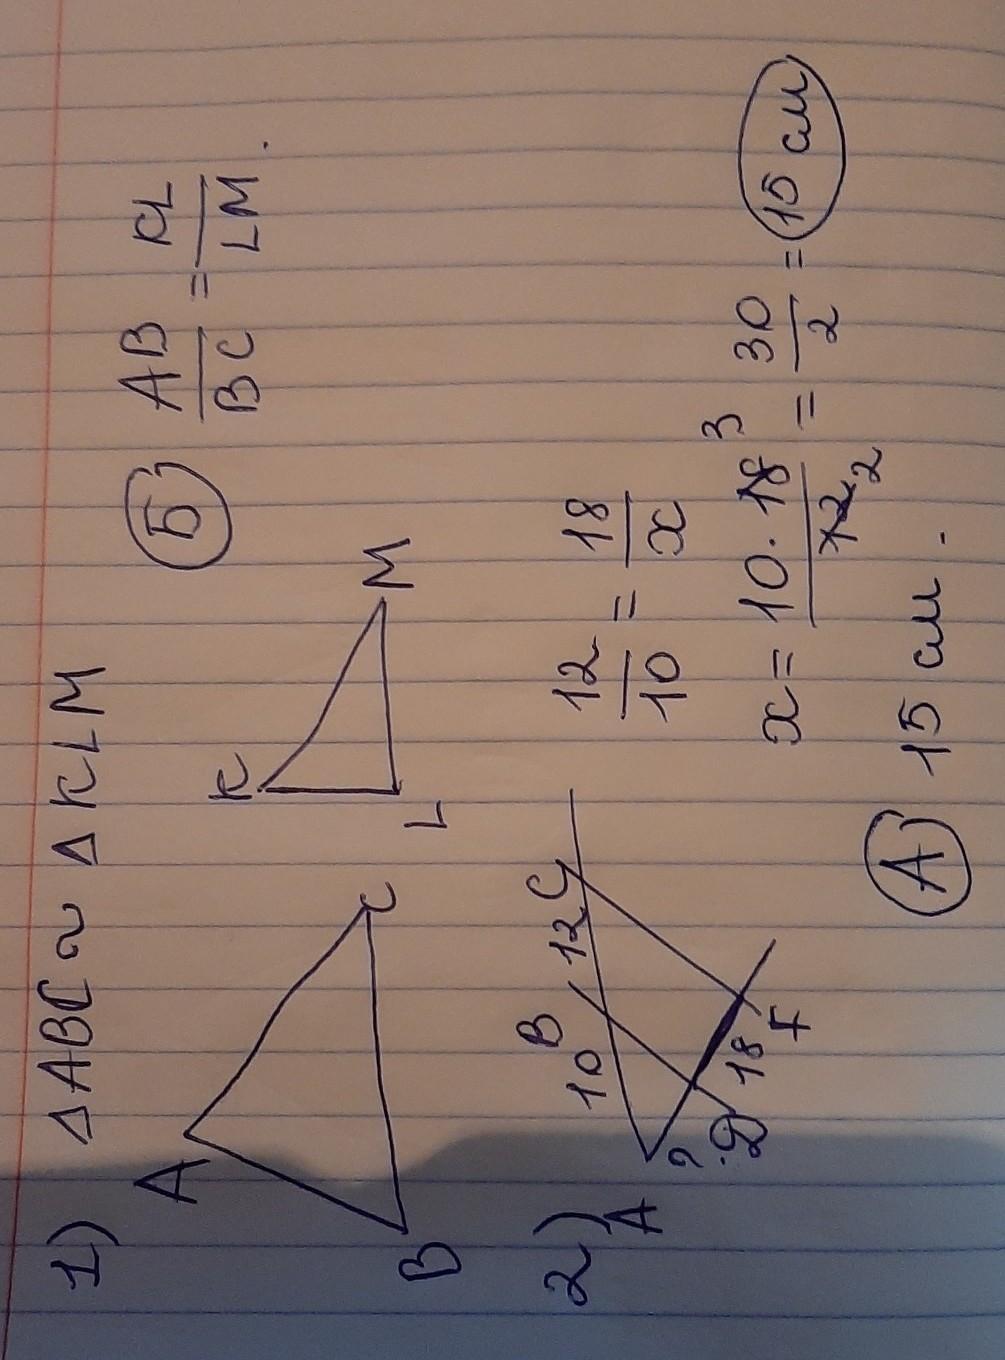 1) ΔABC ~ ΔKLM
A
B
C
K
L
M
Б) AB/BC = KL/LM.
2)
A
10
B
12
C
?
D
18
F
12/10 = 18/x
x = 10·18 3/12 2 = 30/2 = 15 см
А) 15 см.